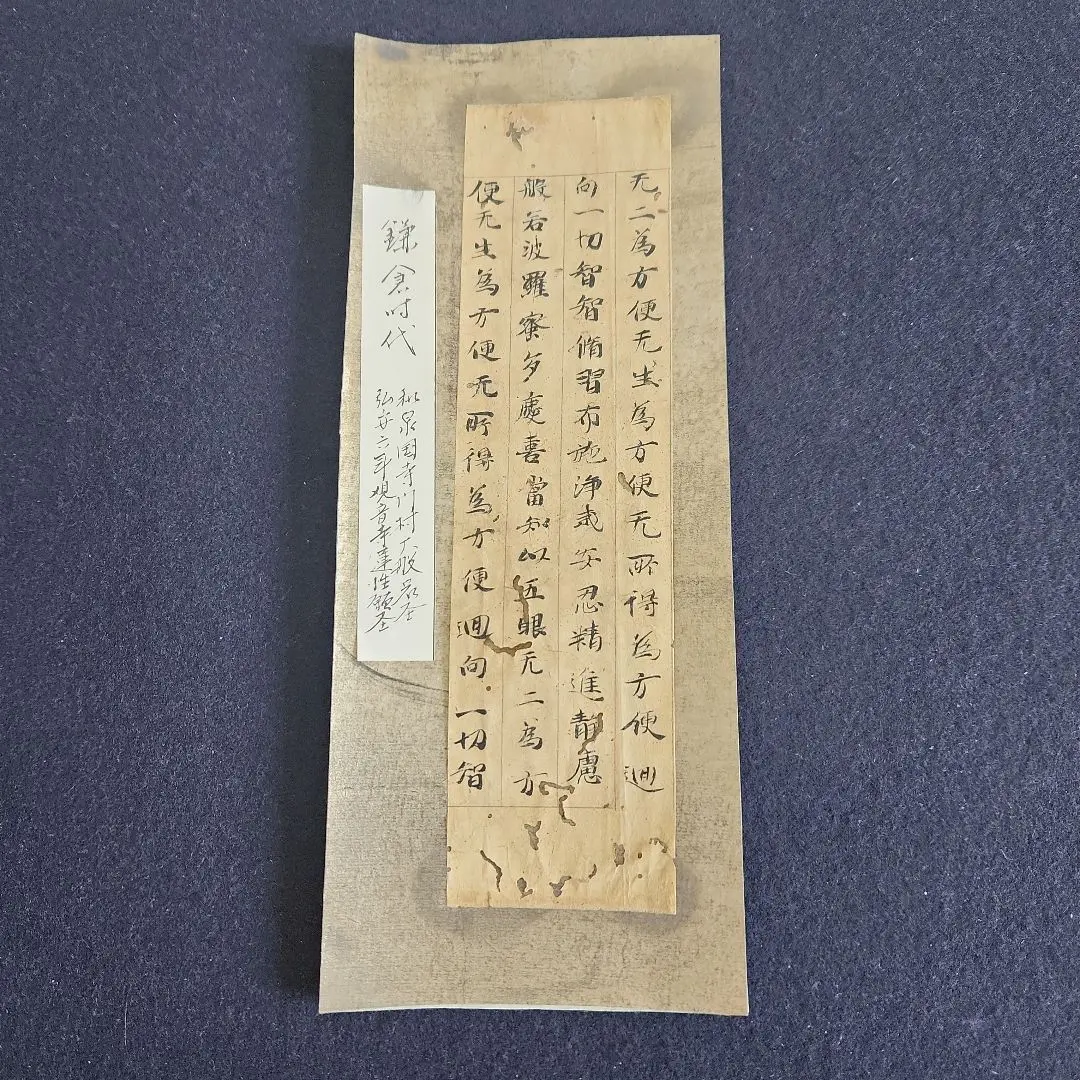 无二為方便无生為方便无所得為方便迴
向一切智智脩習布施浄戒安忍精進静慮
般若波羅蜜多慶喜當知以五眼无二為方
便无生為方便无所得為方便迴向一切智
鎌倉时代
和泉国寺门村大般若経
弘安六年观音寺蓮性願经